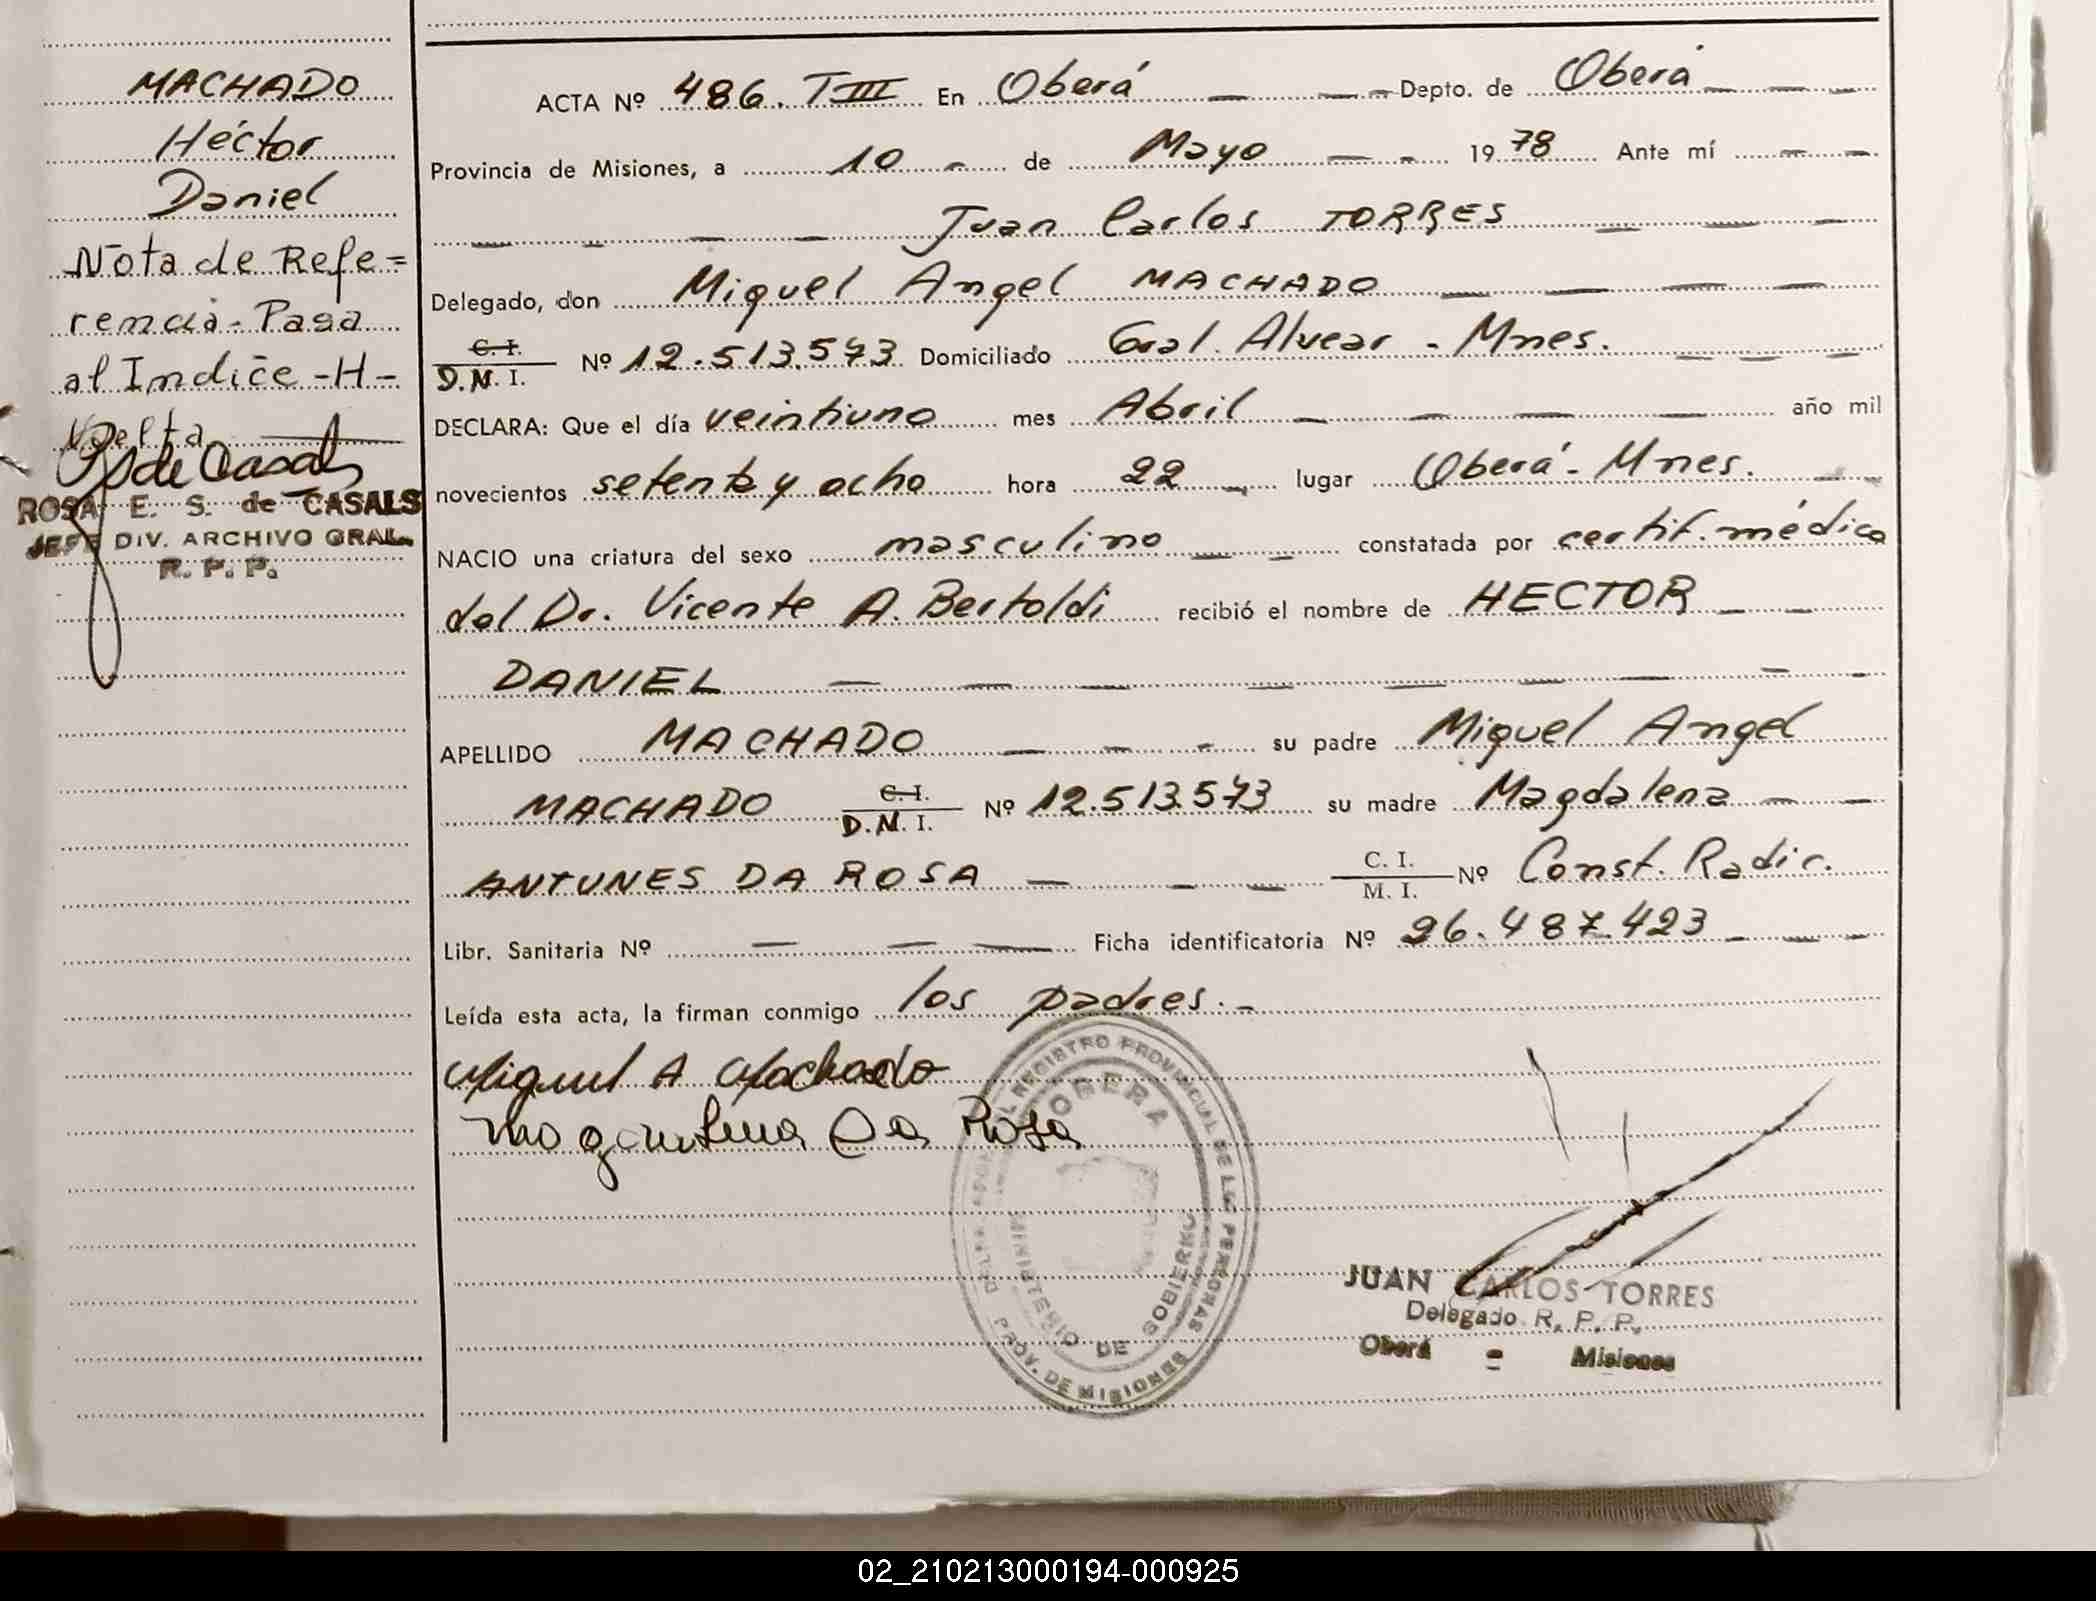 MACHADO
Héctor
Daniel
Nota de Refe=
rencia - Pasa
al Indice - H -
Vuelta
ROSA E. S. de CASALS
JEFE DIV. ARCHIVO GRAL.
R. P. P.
ACTA Nº 486. T III En Oberá Depto. de Oberá
Provincia de Misiones, a 10 de Mayo 1978 Ante mí
Juan Carlos TORRES
Delegado, don Miguel Angel MACHADO
C. I. D.N. I. Nº 12.513.573 Domiciliado Gral. Alvear - Mnes.
DECLARA: Que el día veintiuno mes Abril año mil
novecientos setenta y ocho hora 22 lugar Oberá - Mnes.
NACIO una criatura del sexo masculino constatada por certif. médico
del Dr. Vicente A. Bertoldi recibió el nombre de HECTOR
DANIEL
APELLIDO MACHADO su padre Miguel Angel
MACHADO C. I. D.N. I. Nº 12.513.573 su madre Magdalena
ANTUNES DA ROSA C. I. M. I. Nº Const. Radic.
Libr. Sanitaria Nº Ficha identificatoria Nº 26.487.423
Leída esta acta, la firman conmigo los padres. -
Miguel A Machado
Magdalena Da Rosa
REGISTRO PROVINCIAL DE LAS PERSONAS
OBERA
MINISTERIO DE GOBIERNO
PROV. DE MISIONES
JUAN CARLOS TORRES
Delegado R. P. P.
Oberá - Misiones
02_210213000194-000925